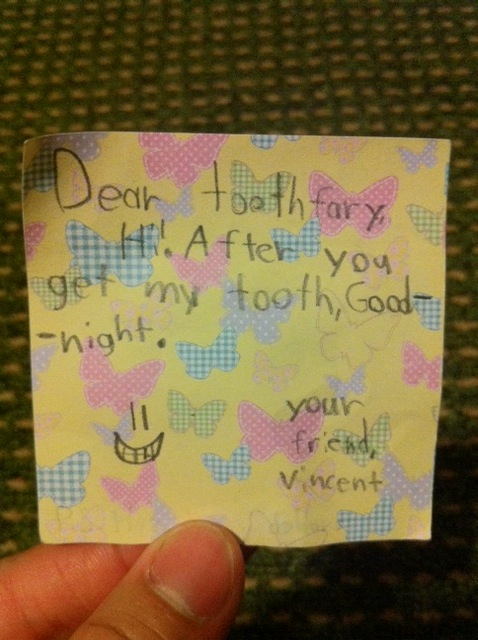 Dear toothfary,
Hi! After you
get my tooth, Good-
-night.
your
friend,
Vincent